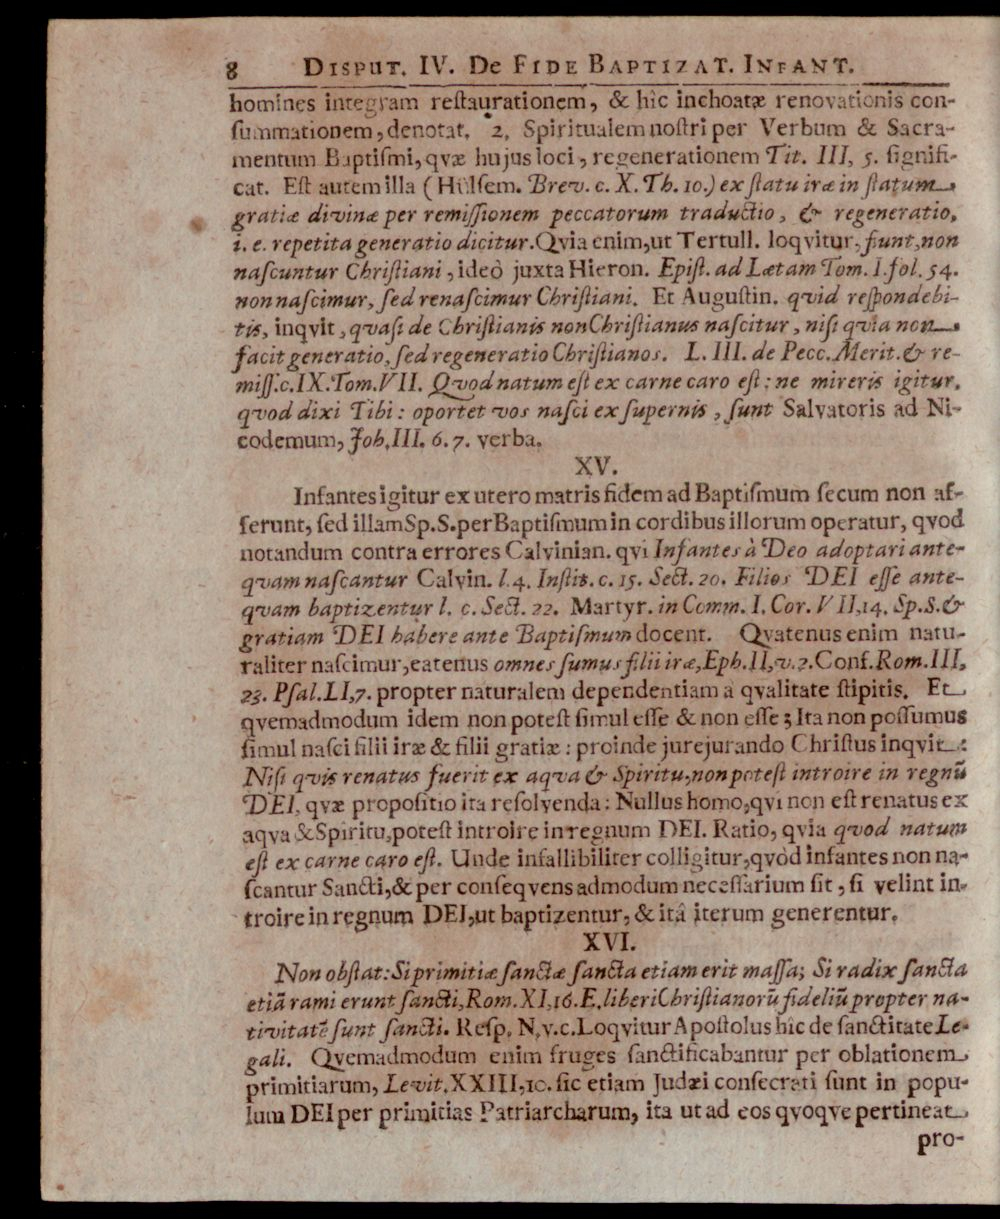 8 DISPUT. IV. DE FIDE BAPTIZAT. INFANT.
homines integram reſtaurationem, & hîc inchoatæ renovationis con-
ſummationem, denotat. 2. Spiritualem noſtri per Verbum & Sacra-
mentum Baptiſmi, qvæ hujus loci, regenerationem Tit. III, 5. ſignifi-
cat. Eſt autem illa (Hülſem. Brev. c. X. Th. 10.) ex ſtatu iræ in ſtatum
gratiæ divinæ per remiſſionem peccatorum traductio, & regeneratio,
i. e. repetita generatio dicitur. Qvia enim, ut Tertull. loqvitur, fiunt, non
naſcuntur Chriſtiani, ideò juxta Hieron. Epiſt. ad Lætam Tom. I. fol. 54.
non naſcimur, ſed renaſcimur Chriſtiani. Et Auguſtin. quid reſpondebi-
tis, inqvit, qvaſi de Chriſtianis non Chriſtianus naſcitur, niſi qvia non
facit generatio, ſed regeneratio Chriſtianos. L. III. de Pecc. Merit. & re-
miſſ. c. IX. Tom. VII. Qvod natum eſt ex carne caro eſt: ne mireris igitur,
qvod dixi Tibi: oportet vos naſci ex ſupernis, ſunt Salvatoris ad Ni-
codemum, Joh. III. 6. 7. verba.
XV.
Infantes igitur ex utero matris fidem ad Baptiſmum ſecum non af-
ferunt, ſed illam Sp. S. per Baptiſmum in cordibus illorum operatur, qvod
notandum contra errores Calvinian. qvi Infantes à Deo adoptari ante-
qvam naſcantur Calvin. l. 4. Inſtit. c. 15. Sect. 20. Filios DEI eſſe ante-
qvam baptizentur l. c. Sect. 22. Martyr. in Comm. I. Cor. VII, 14. Sp. S. &
gratiam DEI habere ante Baptiſmum docent. Qvatenus enim natu-
raliter naſcimur, eatenus omnes ſumus filii iræ, Eph. II, v. 3. Conf. Rom. III,
23. Pſal. LI, 7. propter naturalem dependentiam à qvalitate ſtipitis. Et
qvemadmodum idem non poteſt ſimul eſſe & non eſſe; Ita non poſſumus
ſimul naſci filii iræ & filii gratiæ: proinde jurejurando Chriſtus inqvit:
Niſi qvis renatus fuerit ex aqva & Spiritu, non poteſt introire in regnũ
DEI, qvæ propoſitio ita reſolvenda: Nullus homo, qvi non eſt renatus ex
aqva & Spiritu, poteſt introire in regnum DEI. Ratio, qvia qvod natum
eſt ex carne caro eſt. Unde infallibiliter colligitur, qvòd infantes non na-
ſcantur Sancti, & per conſeqvens admodum neceſſarium ſit, ſi velint in-
troire in regnum DEI, ut baptizentur, & itâ iterum generentur.
XVI.
Non obſtat: Si primitiæ ſanctæ ſancta etiam erit maſſa; Si radix ſancta
etiã rami erunt ſancti, Rom. XI, 16. E. liberi Chriſtianorũ fideliũ propter na-
tivitatẽ ſunt ſancti. Reſp. N. v. c. Loqvitur Apoſtolus hîc de ſanctitate Le-
gali. Qvemadmodum enim fruges ſanctificabantur per oblationem
primitiarum, Levit. XXIII, 10. ſic etiam Judæi conſecrati ſunt in popu-
lum DEI per primitias Patriarcharum, ita ut ad eos qvoqve pertineat
pro-